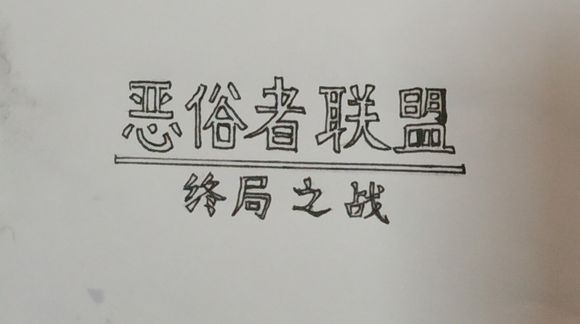 恶俗者联盟
终局之战